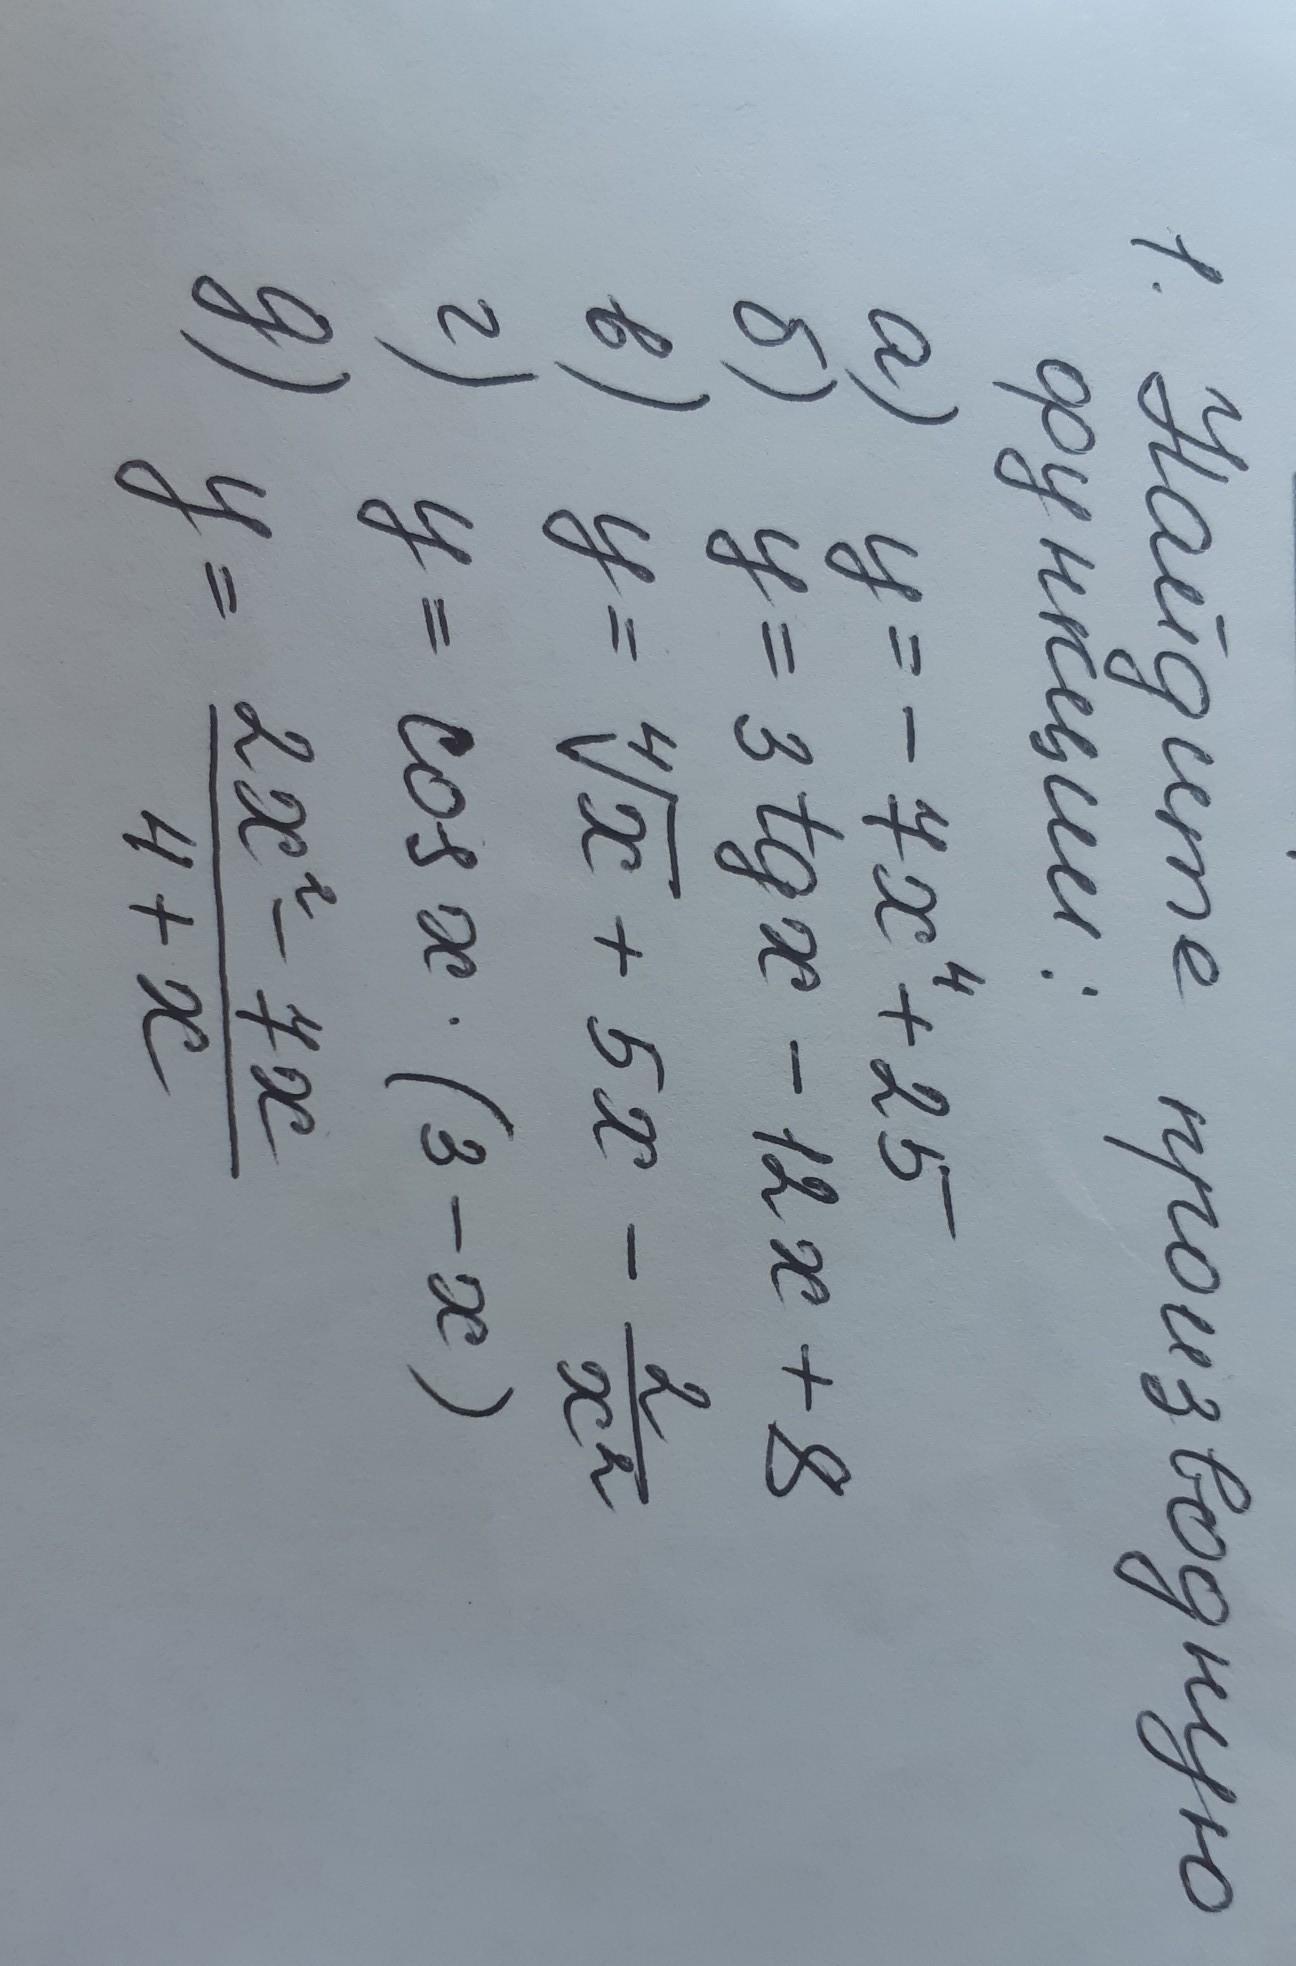 1. Найдите производную
функции:
а) y = - 7x⁴ + 25
б) y = 3 tgx - 12x + 8
в) y = ⁴√x + 5x - 2/x²
г) y = cos x · (3 - x)
д) y = (2x² - 7x)/(4 + x)